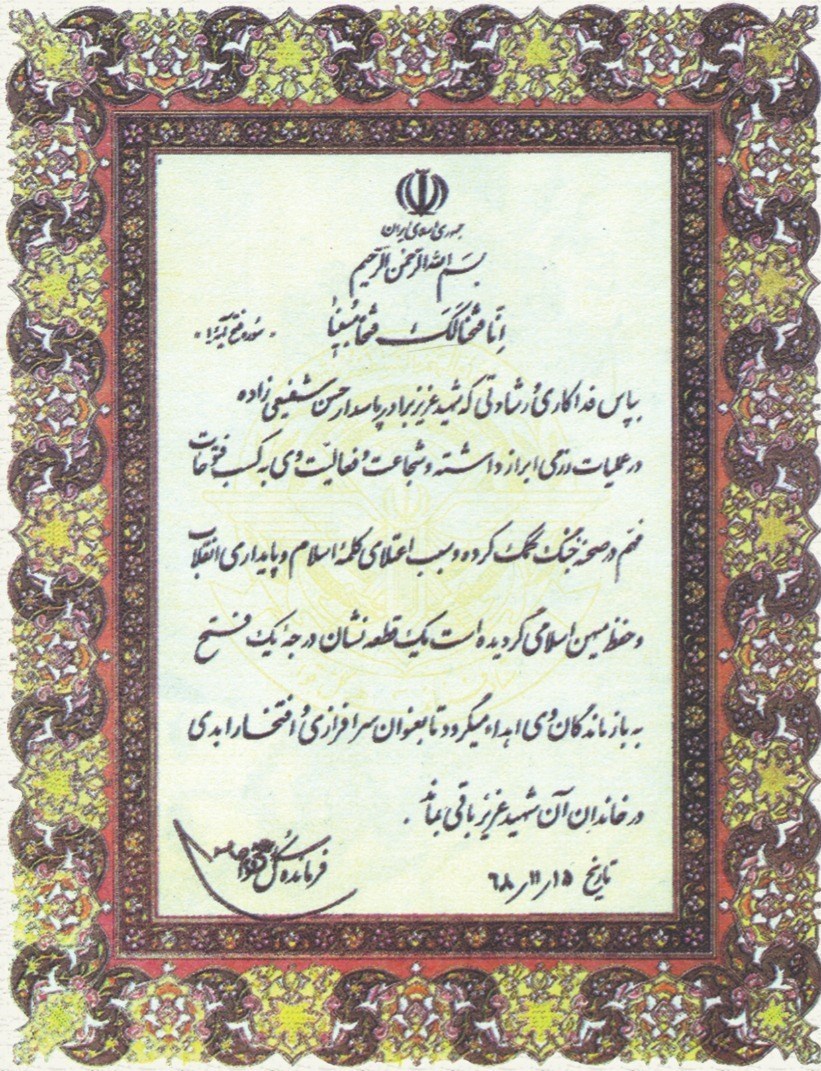 جمهوری اسلامی ایران
بسم الله الرحمن الرحیم
اِنّا فتحنا لَکَ فتحاً مُبیناً « سوره فتح آیه ۱ »
بپاس فداکاری و رشادتی که شهید عزیز برادر پاسدار حسن شفیعی زاده
در عملیات رزمی ابراز داشته و شجاعت و فعالیت وی به کسب فتوحات
مهم در صحنه جنگ کمک کرده و سبب اعتلای کلمه اسلام و پایداری انقلاب
و حفظ میهن اسلامی گردیده است یک قطعه نشان درجه یک فتح
به بازماندگان وی اهداء میگردد تا بعنوان سرافرازی و افتخار ابدی
در خاندان آن شهید عزیز باقی بماند .
تاریخ ۶۸٫۱۱٫۱۵
فرمانده کل قوا